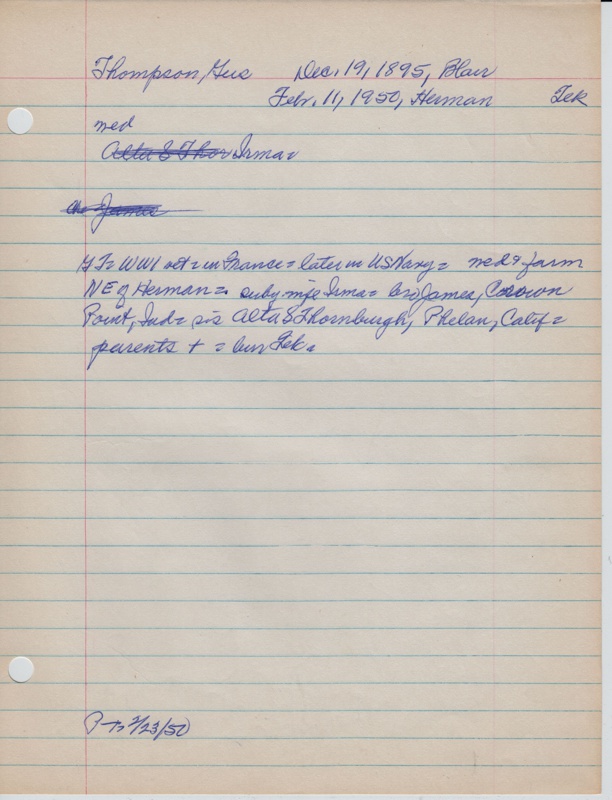 Thompson, Gus Dec. 19, 1895, Blair
Febr. 11, 1950, Herman Tek
med
Alta S Thor Irma =
ch = James
GT = WWI vet = in France = later in US Navy = med & farm
NE of Herman = surby wife Irma = bro James, Crown
Point, Ind = sis Alta S Thornburgh, Phelan, Calif =
parents + = bur Tek =
2/23/50